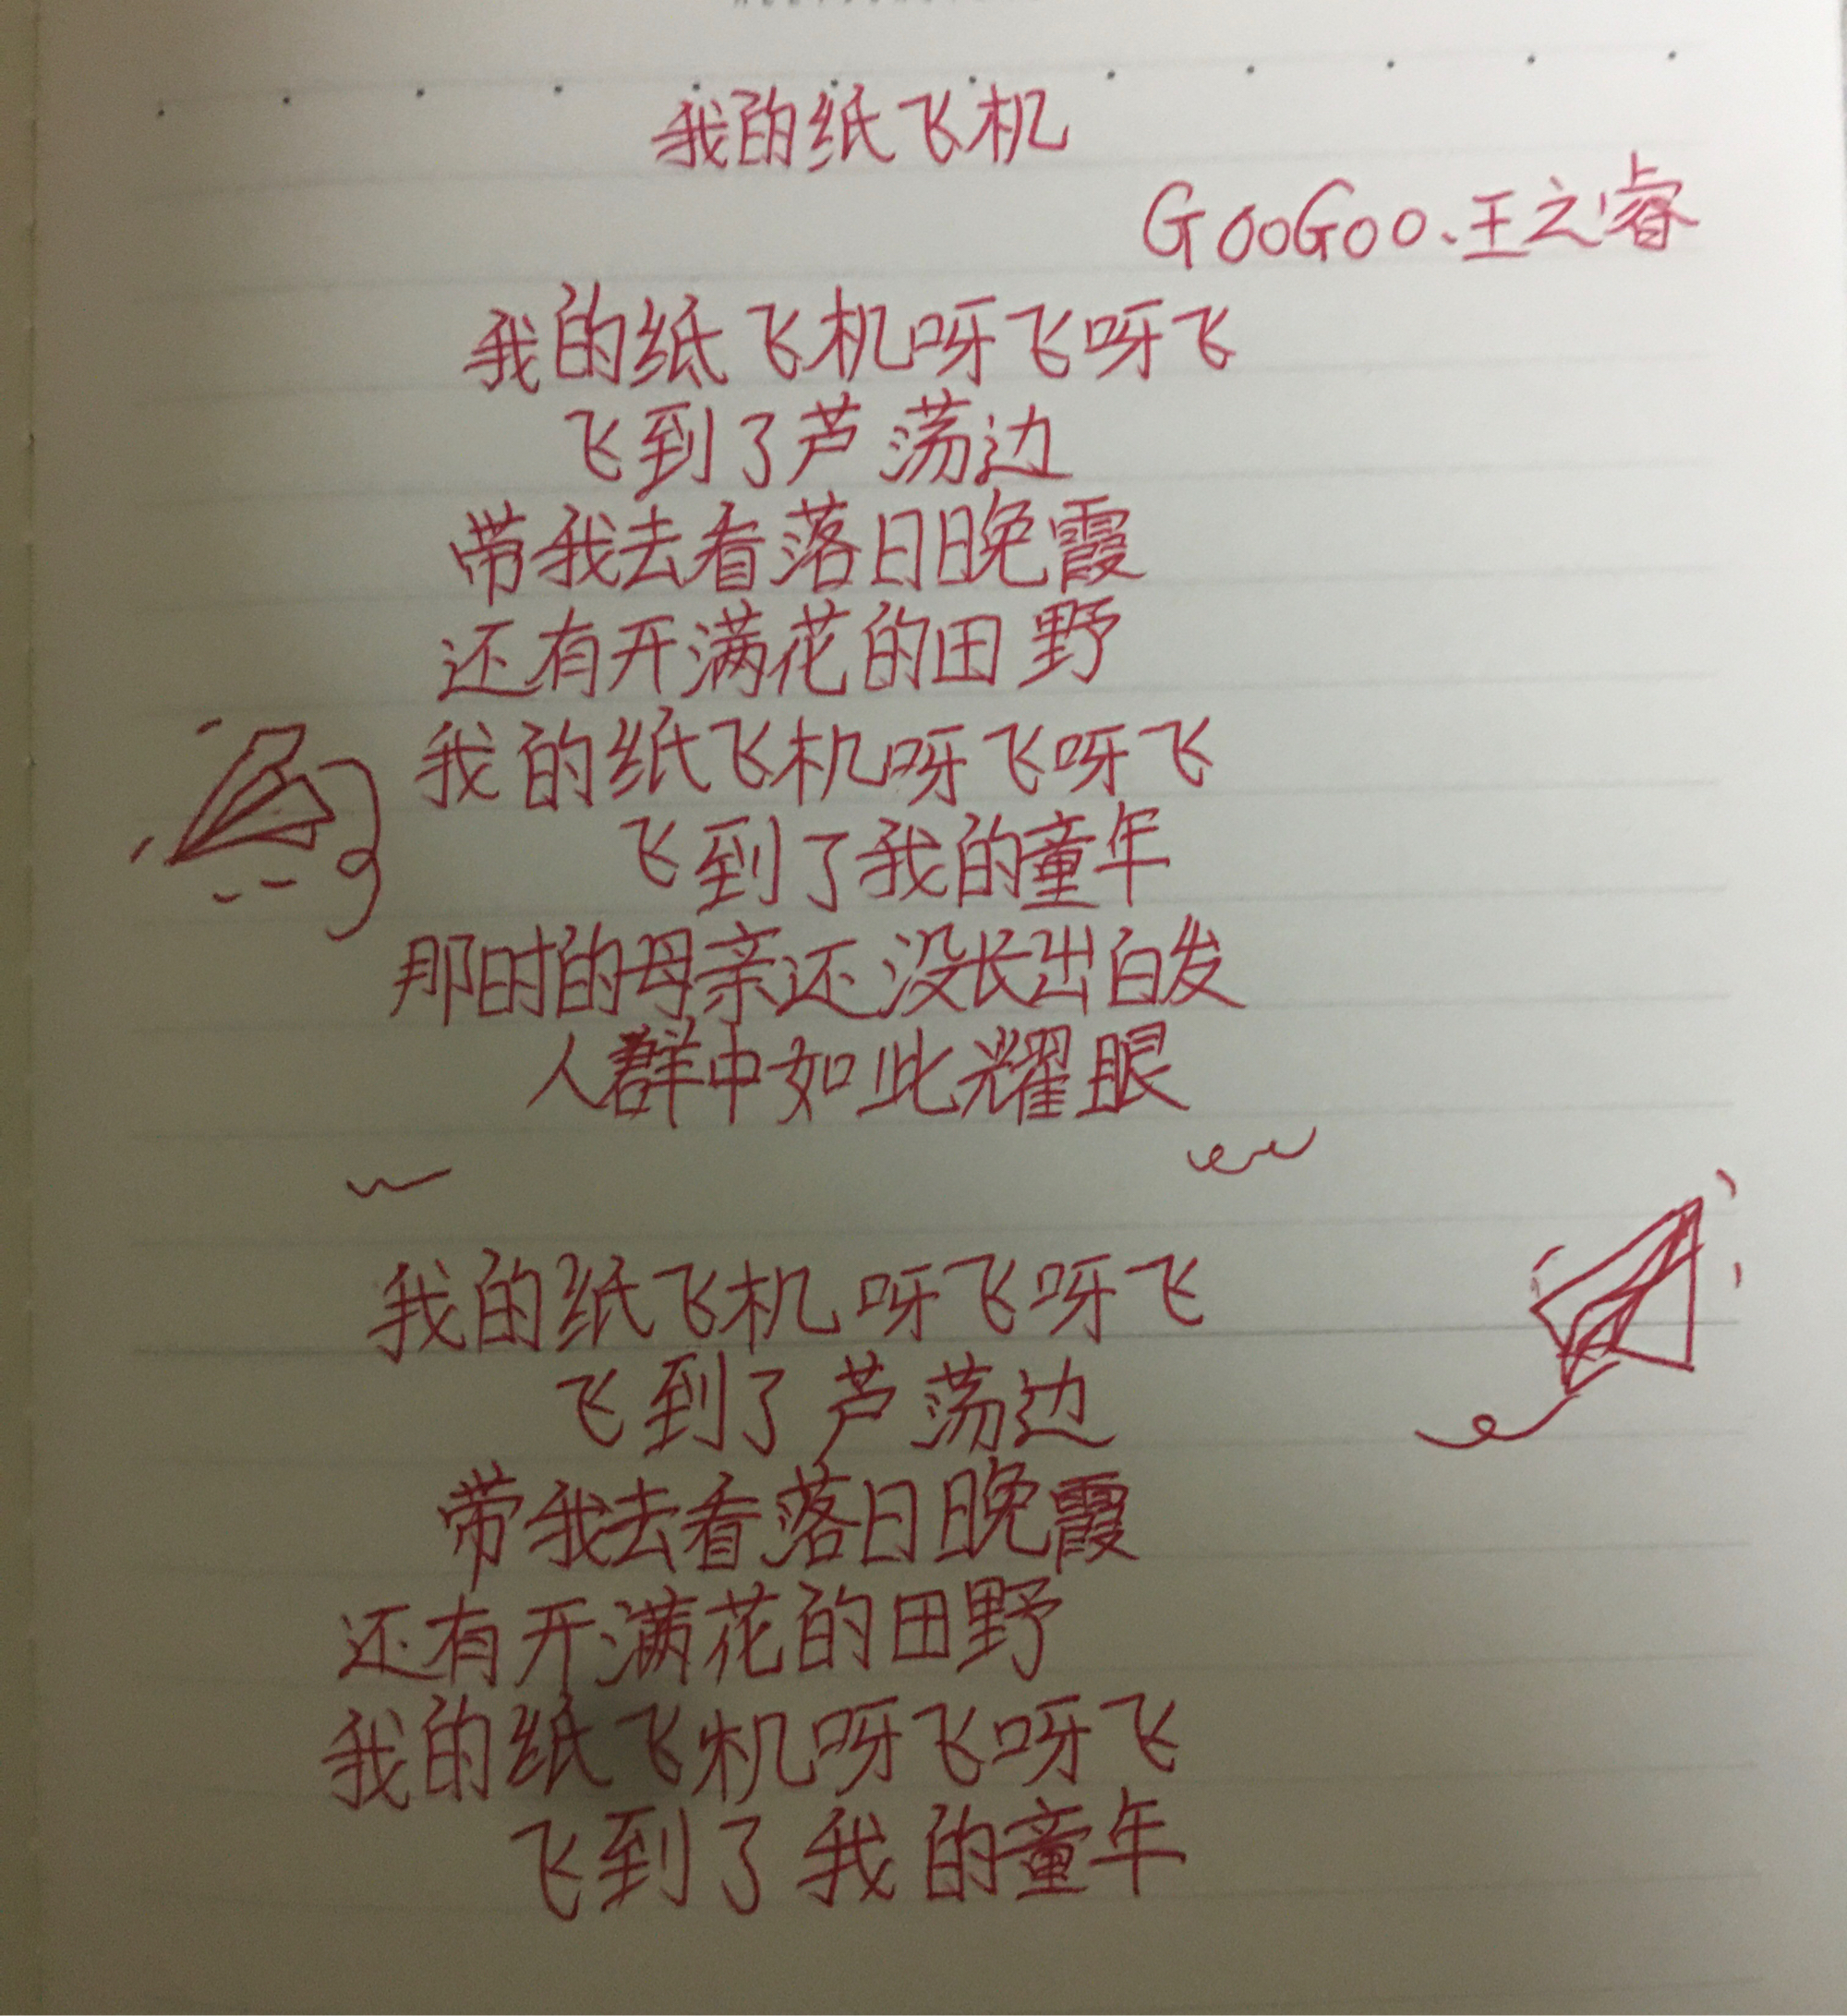 我的纸飞机
GooGoo、王之睿
我的纸飞机呀飞呀飞
飞到了芦荡边
带我去看落日晚霞
还有开满花的田野
我的纸飞机呀飞呀飞
飞到了我的童年
那时的母亲还没长出白发
人群中如此耀眼
我的纸飞机呀飞呀飞
飞到了芦荡边
带我去看落日晚霞
还有开满花的田野
我的纸飞机呀飞呀飞
飞到了我的童年